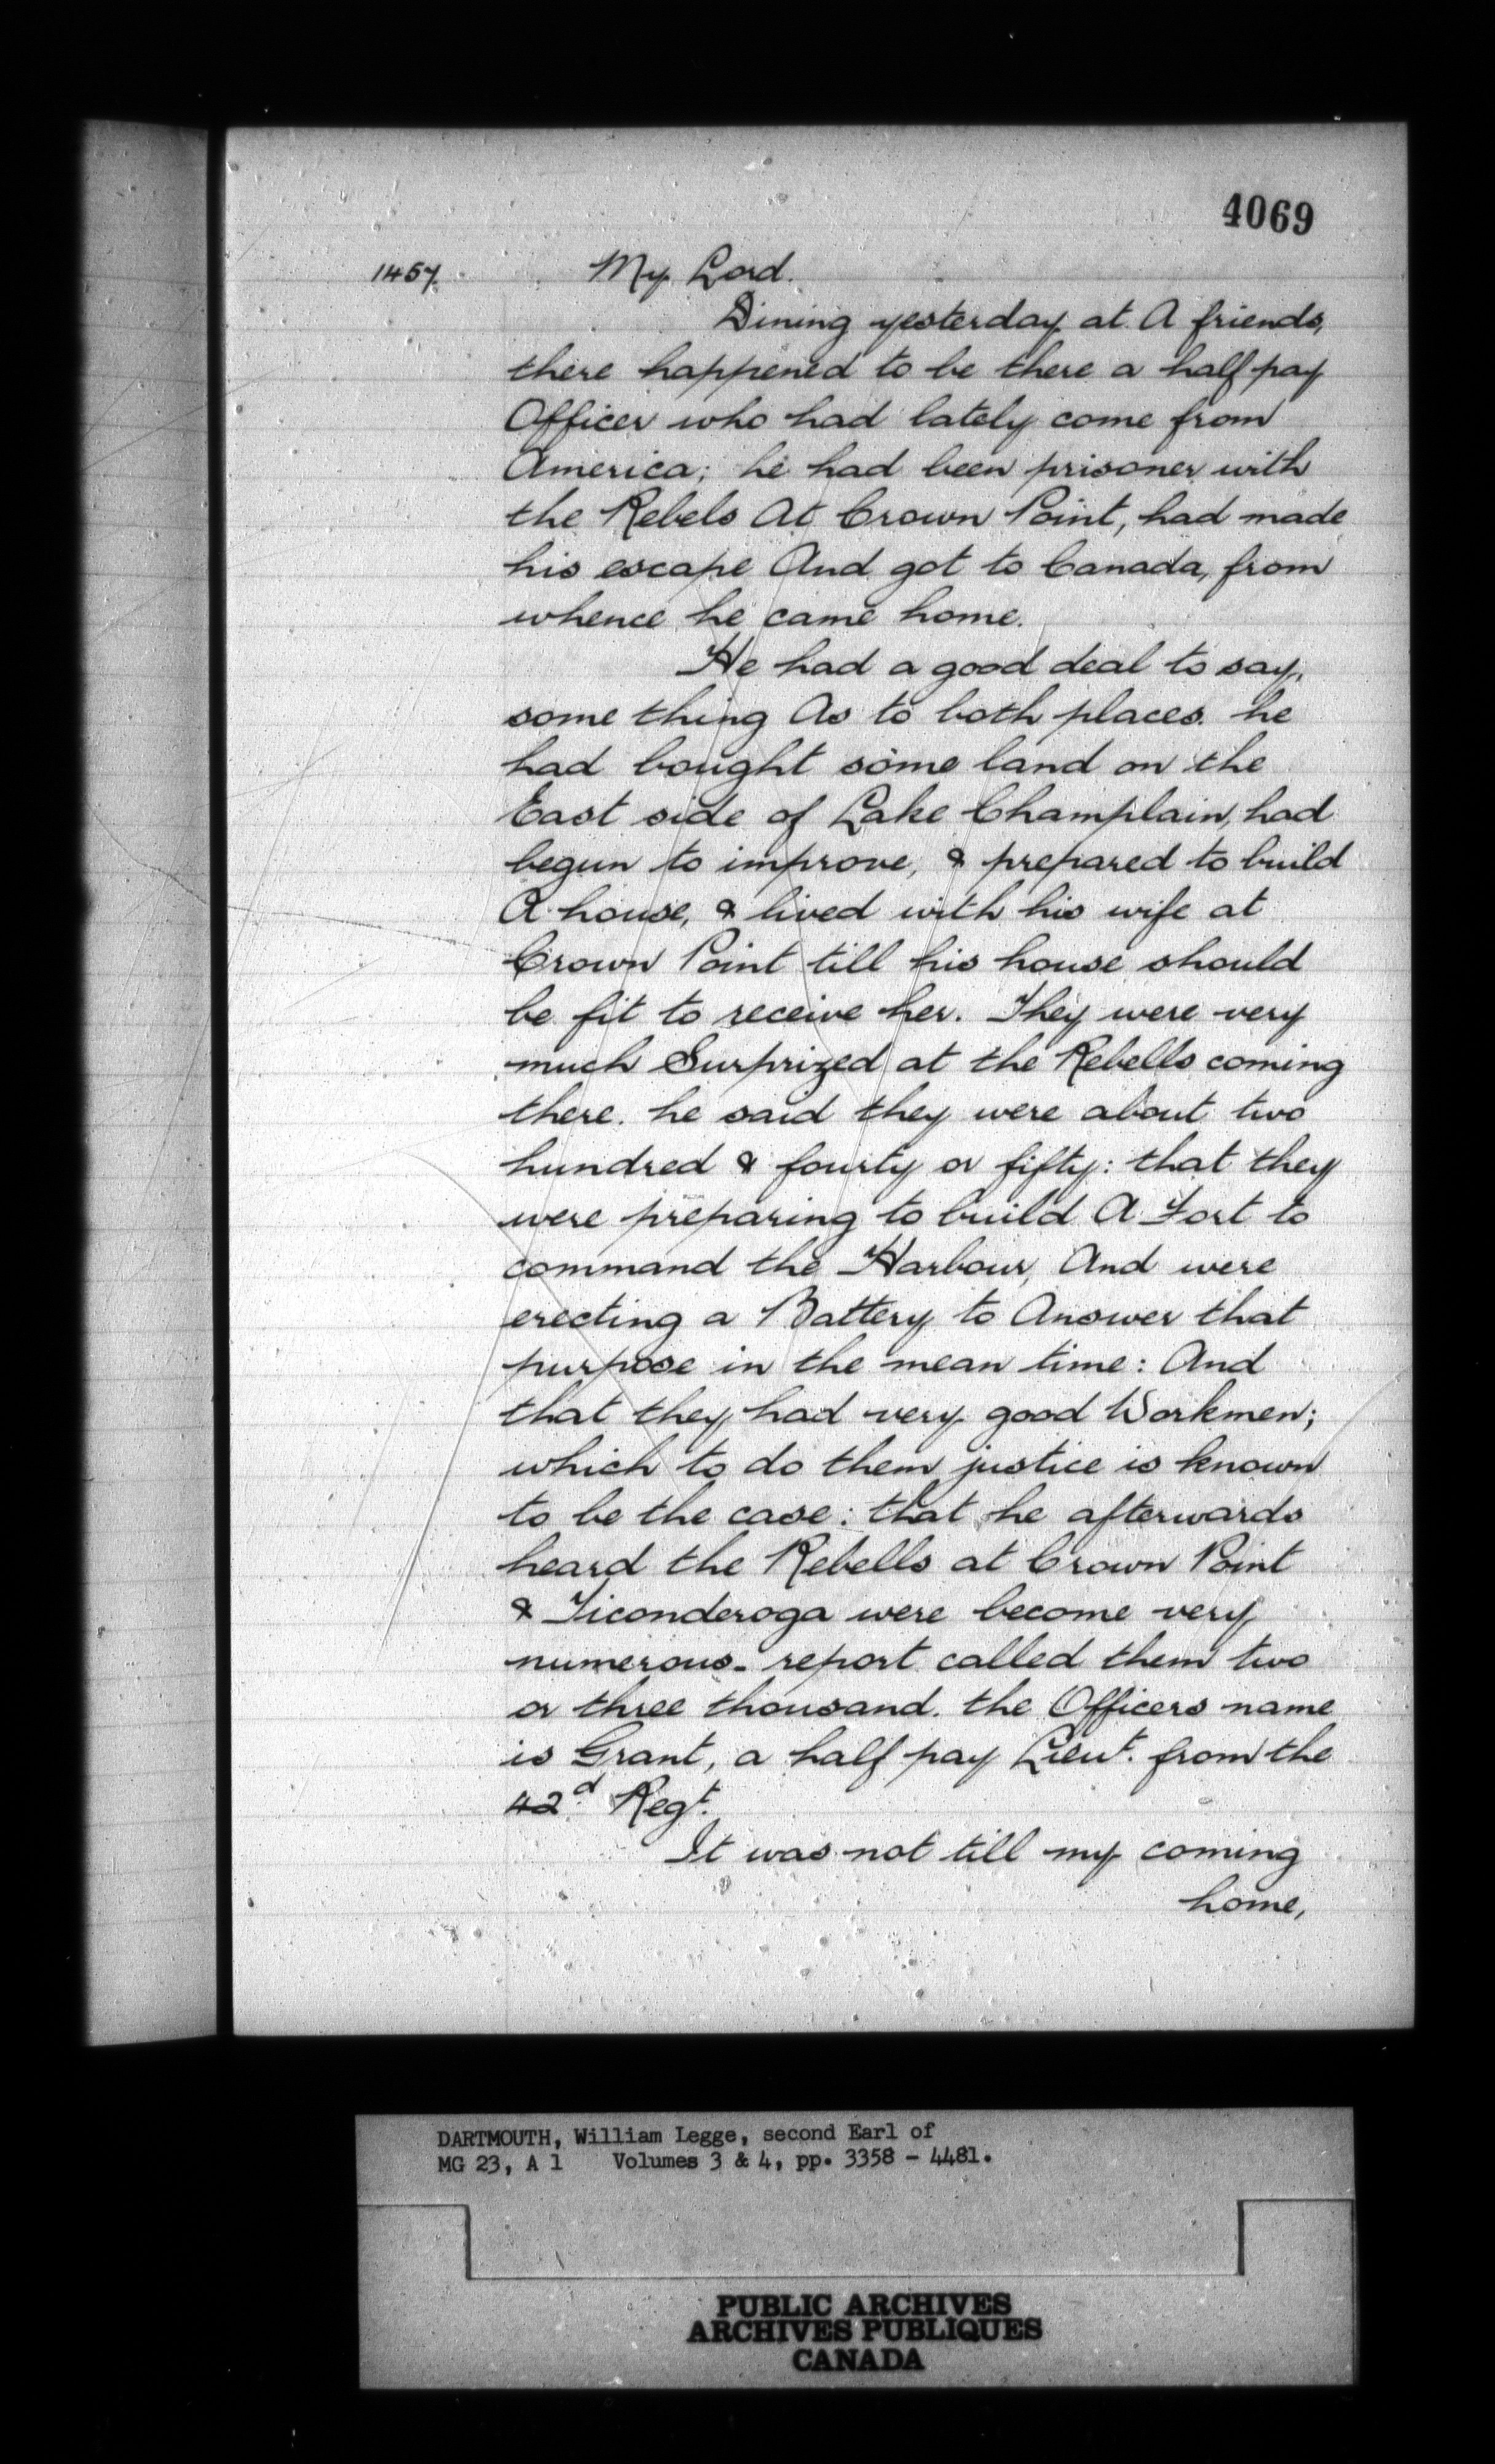 4069
1457. My Lord.
Dining yesterday at A friends,
there happened to be there a half pay
Officer who had lately come from
America; he had been prisoner with
the Rebels At Crown Point, had made
his escape And got to Canada, from
whence he came home.
He had a good deal to say,
some thing As to both places. he
had bought some land on the
East side of Lake Champlain, had
begun to improve, & prepared to build
A house, & lived with his wife at
Crown Point till his house should
be fit to receive her. They were very
much Surprized at the Rebells coming
there. he said they were about two
hundred & fourty or fifty: that they
were preparing to build A Fort to
command the Harbour, And were
erecting a Battery to Answer that
purpose in the mean time: And
that they had very good Workmen;
which to do them justice is known
to be the case: that he afterwards
heard the Rebells at Crown Point
& Ticonderoga were become very
numerous- report called them two
or three thousand. the Officers name
is Grant, a half pay Lieut. from the
42d Regt.
It was not till my coming
home,
DARTMOUTH, William Legge, second Earl of
MG 23, A 1 Volumes 3 & 4, pp. 3358 - 4481.
PUBLIC ARCHIVES
ARCHIVES PUBLIQUES
CANADA